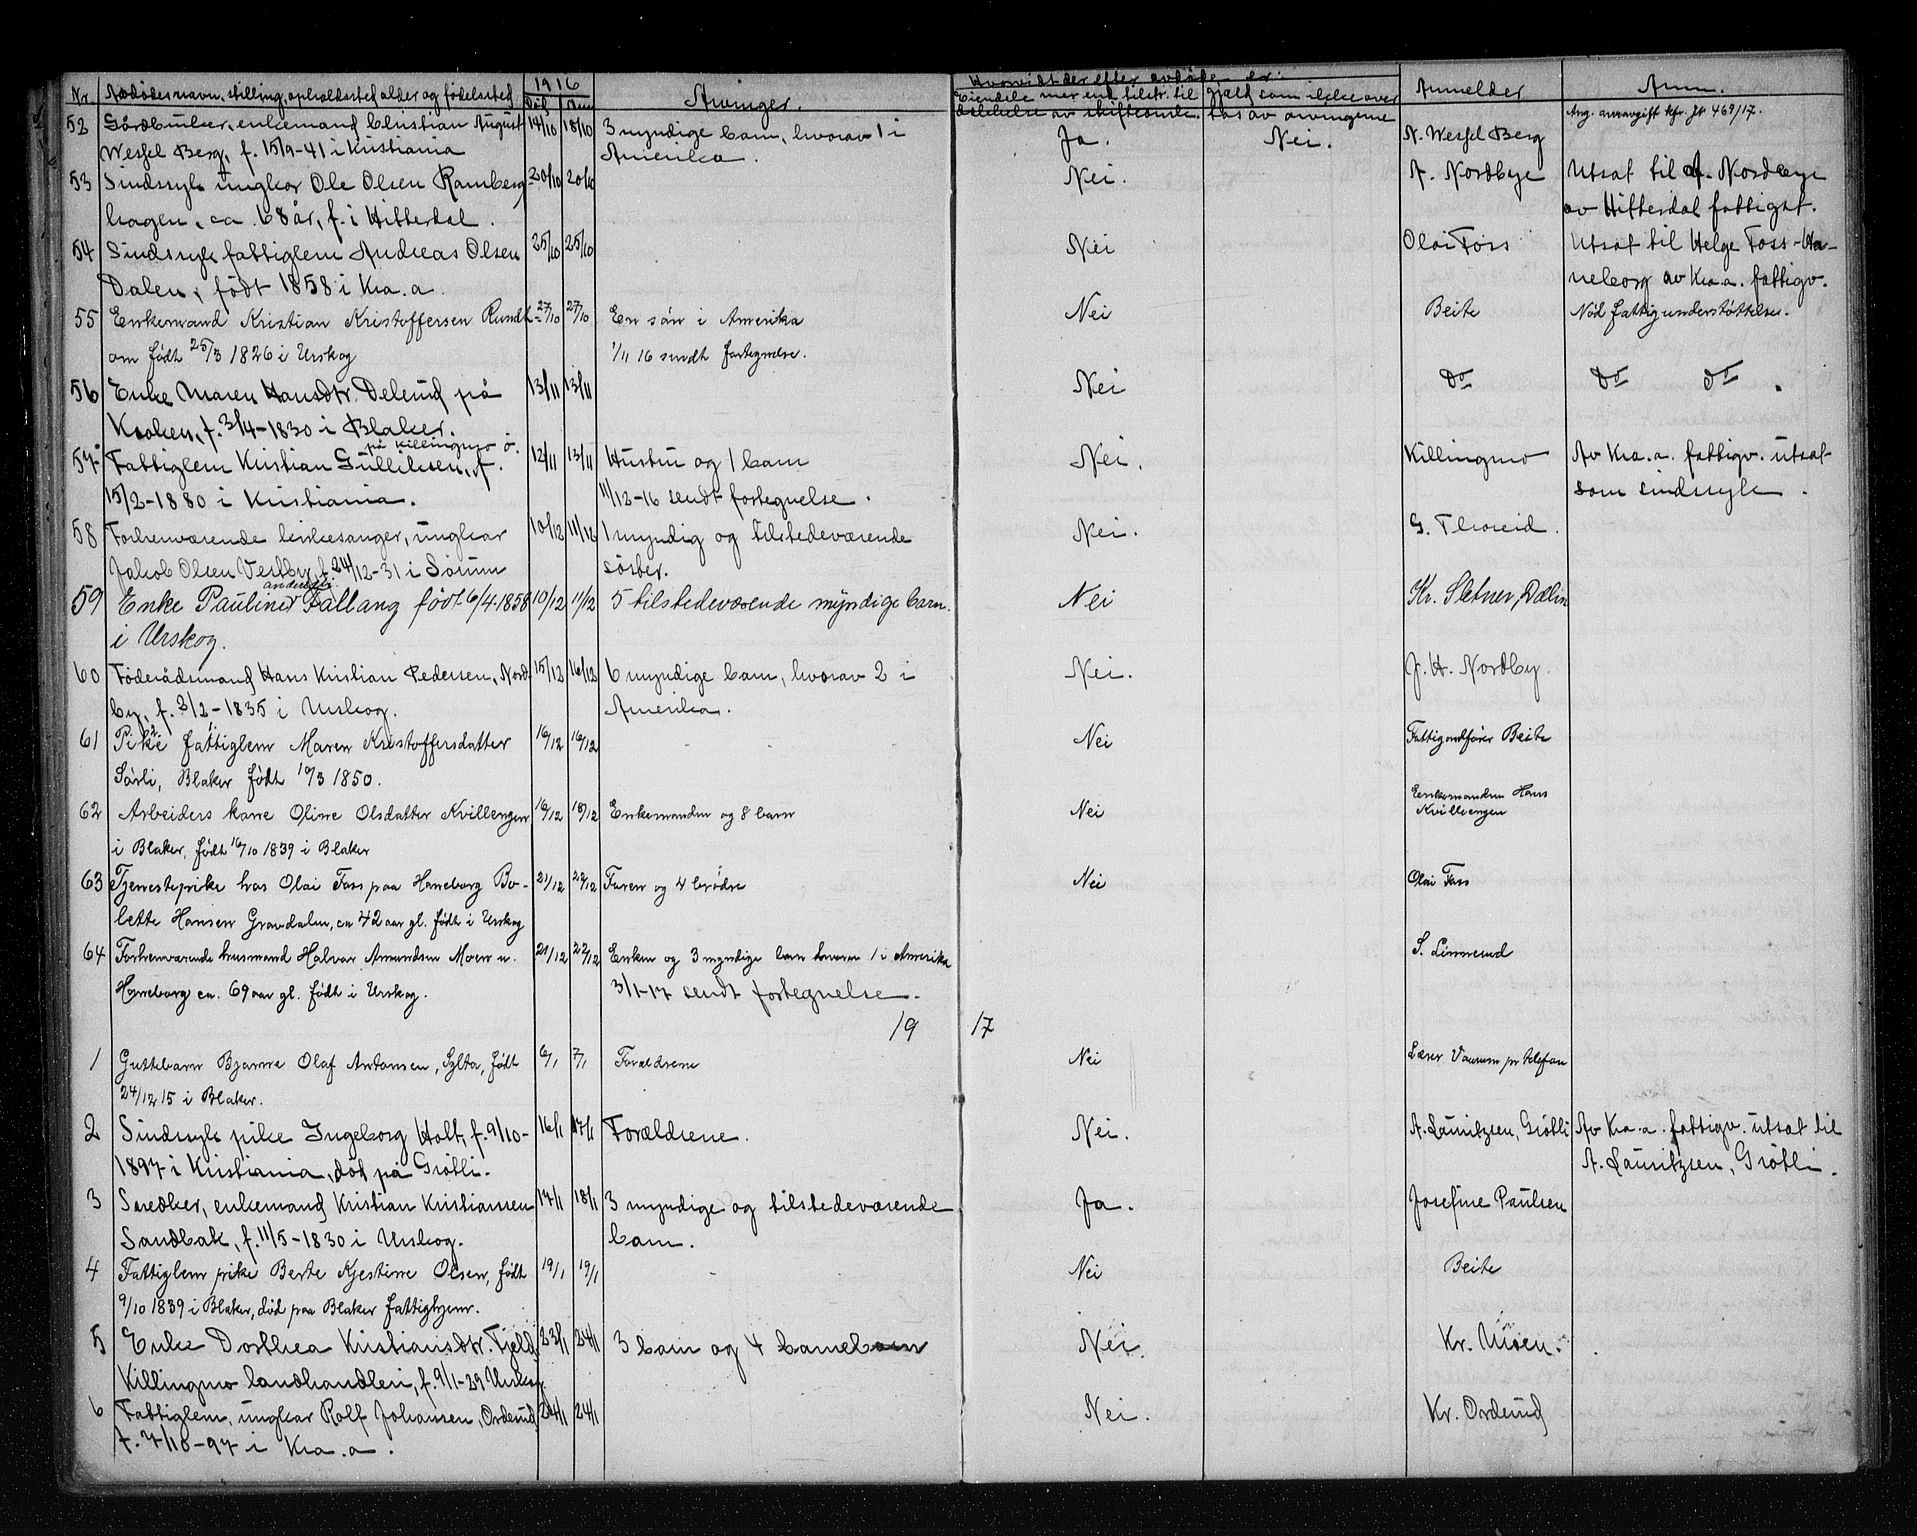 Nr. Avdødes navn, stilling, opholdssted, alder og fødelssted 1916 Død Anm Arvinger. Hvorvidt der efter avdøde er: Eiendele mer end tilstr. til dækkelse av skifteomk. gjæld som ikke over tas av arvingerne Anmelder Anm.
52 Gårdbruker, enkemand Christian August 14/10 18/10 3 myndige barn, hvorav 1 i Ja. Nei. N. Wessel Berg Ang. arveavgift kfr. jr 469/17.
Wessel Berg, f. 15/9-41 i Kristiania Amerika.
53 Sindssyk ungkar Ole Olsen Ramberg 20/10 20/10 Nei. A. Nordbye Utsat til A. Nordbye
hagen, ca. 68 år, f. i Hitterdal. av Hitterdal fattigst.
54 Sindssyk fattiglem Andreas Olsen 25/10 25/10 Nei Olai Foss Utsat til Helge Foss-Ha-
Dalen, født 1858 i Kra.a. neborg av Kra.a. fattigv.
55 Enkemand Kristian Kristoffersen Rundt 27/10 27/10 En sön i Amerika Nei Beite Nöd fattigunderstøttelse.
om født 25/3 1826 i Urskog 1/11 16 sendt fortegnelse.
56 Enke Maren Hansdtr. Delerud på 13/11 13/11 Nei Do Do Do.
Kroken, f. 3/4-1830 i Blaker.
57 Fattiglem Kristian Gulliksen, på Killingmo ö. f. 12/11 13/11 Hustru og 1 barn Nei. Killingmo Av Kra.a. fattigv. utsat
15/2-1880 i Kristiania. 11/12-16 sendt fortegnelse. som sindssyk.
58 Forhenværende kirkesanger, ungkar 10/12 11/12 1 myndig og tilstedeværende Nei. G. Thoreid.
Jakob Olsen Vestby, f. 24/12-31 i Sörum søster.
59 Enke Pauline andersdtr. Fallang født 6/4.1858 10/12 11/12 5 tilstedeværende myndige barn. Nei Kr. Sletner, Dælin
i Urskog.
60 Föderådsmand Hans Kristian Pedersen, Nord 15/12 16/12 6 myndige barn, hvorav 2 i Nei. J. H. Nordby.
by, f. 2/2-1835 i Urskog. Amerika.
61 Pike fattiglem Maren Kristoffersdatter 16/12 16/12 - Nei Fattigordfører Beite
Sörli, Blaker født 10/3 1850.
62 Arbeiders kone Oline Olsdatter Kvillengen 16/12 18/12 Enkemanden og 8 barn Nei Enkemanden Hans Kvillengen
i Blaker, født 16/10 1839 i Blaker
63 Tjenestepike hos Olai Foss paa Haneborg Bo- 21/12 22/12 Faren og 4 brødre Nei Olai Foss
lette Hansen Grandalen, ca 42 aar gl. født i Urskog
64 Forhenværende husmand Halvor Amundsen Moen u. 21/12 22/12 Enken og 3 myndige barn hvorav 1 i Amerika S. Linnerud
Haneborg ca. 69 aar gl. født i Urskog. 3/1-17 sendt fortegnelse.
19 17
1 Guttebarn Bjarne Olaf Antonsen, Sylta, født 6/1 7/1 Forældrene Nei Lærer Vaurum pr telefon
24/12 15 i Blaker.
2 Sindssyk pike Ingeborg Holt, f. 9/10- 16/1 17/1 Forældrene. Nei. A. Lauritzsen, Gröbli Av Kra.a. fattigv. utsat til
1897 i Kristiania, död på Gröbli. A. Lauritzsen, Gröbli.
3 Smedker, enkemand Kristian Kristiansen 17/1 18/1 3 myndige og tilstedeværende Ja. Josefine Paulsen
Sandbak, f. 11/5-1830 i Urskog. barn.
4 Fattiglem pike Berte Kjestine Olsen, født 19/1 19/1 - Nei Beite
9/10 1839 i Blaker, död paa Blaker fattighjem.
5 Enke Dorthea Kristiansdtr. Fjeld, 23/1 24/1 3 barn og 4 barnebarn Nei. Kr. Moen.
Killingmo landhandleri, f. 9/1-29 Urskog.
6 Fattiglem, ungkar Rolf Johansen, Orderud 24/1 24/1 Nei. Kr. Orderud
f. 7/10-97 i Kra.a.